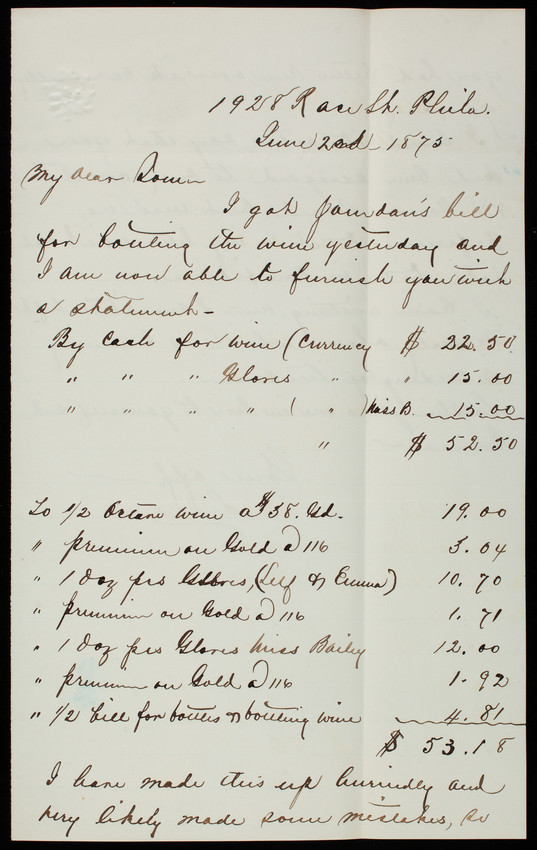 1928 Race St. Phila.
June 2nd 1875
My dear
I got Jamdan's bill
for bottling the wine yesterday and
I am now able to furnish you with
a statement -
By Cash for wine (Currency $ 22.50
" " " Gloves " " 15.00
" " " " ( " ) Miss B. 15.00
" $ 52.50
To 1/2 Octave wine a $38. Gd. 19.00
" premium on Gold a) 116 3.04
" 1 doz prs Gloves, (Self & Emma) 10.70
" premium on Gold a) 116 1.71
" 1 doz prs Gloves Miss Bailey 12.00
" premium on Gold a) 116 1.92
" 1/2 bill for bottles & bottling wine 4.81
$ 53.18
I have made this up hurriedly and
very likely made some mistakes, so